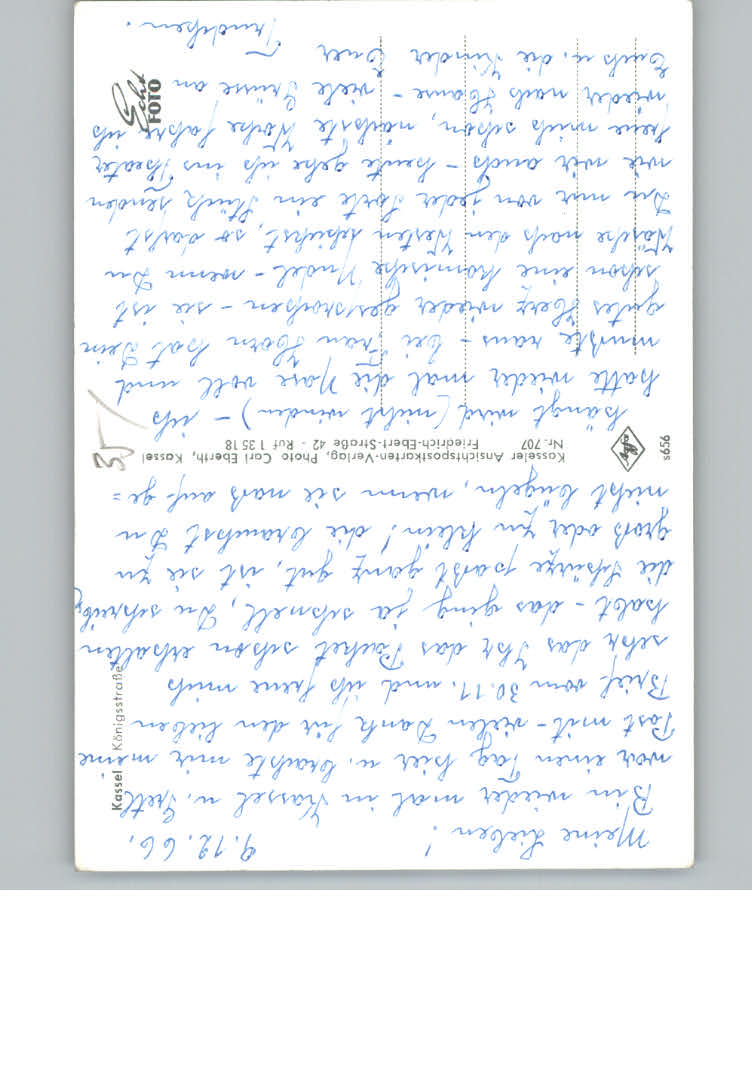 9.12.66.
Meine Lieben!
Bin wieder mal in Kassel u. Gretl
war einen Tag hier u. brachte mir meine
Post mit - vielen Dank für den lieben
Brief vom 30.11. und ich freue mich
sehr, das Ihr das Packet schon erhalten
habt - das ging ja schnell, Du schreibst,
die Schürze passt ganz gut, ist sie zu
groß oder zu klein! die brauchst Du
nicht bügeln, wenn sie nass auf ge=
hängt wird (nicht winden) - ich
hatte wieder mal die Nase voll und
musste raus - bei Frau Horn hat Dein
gutes Herz wieder gesprochen - sie ist
schon eine komische Nudel - wenn Du
Wäsche nach den Westen schickst, so darfst
Du nur von jeder Sorte ein Stück senden
wie wir auch - heute gehe ich ins Theater
freue mich schon, nächste Woche fahre ich
wieder nach Hause - viele Grüsse an
Euch u. die Kinder Euer
Trudchen.
Kassel Königsstraße
Kasseler Ansichtspostkarten-Verlag, Photo Carl Eberth, Kassel
Nr. 707 Friedrich-Ebert-Straße 42 - Ruf 1 35 18
Echt
FOTO
Agfa
s656
35